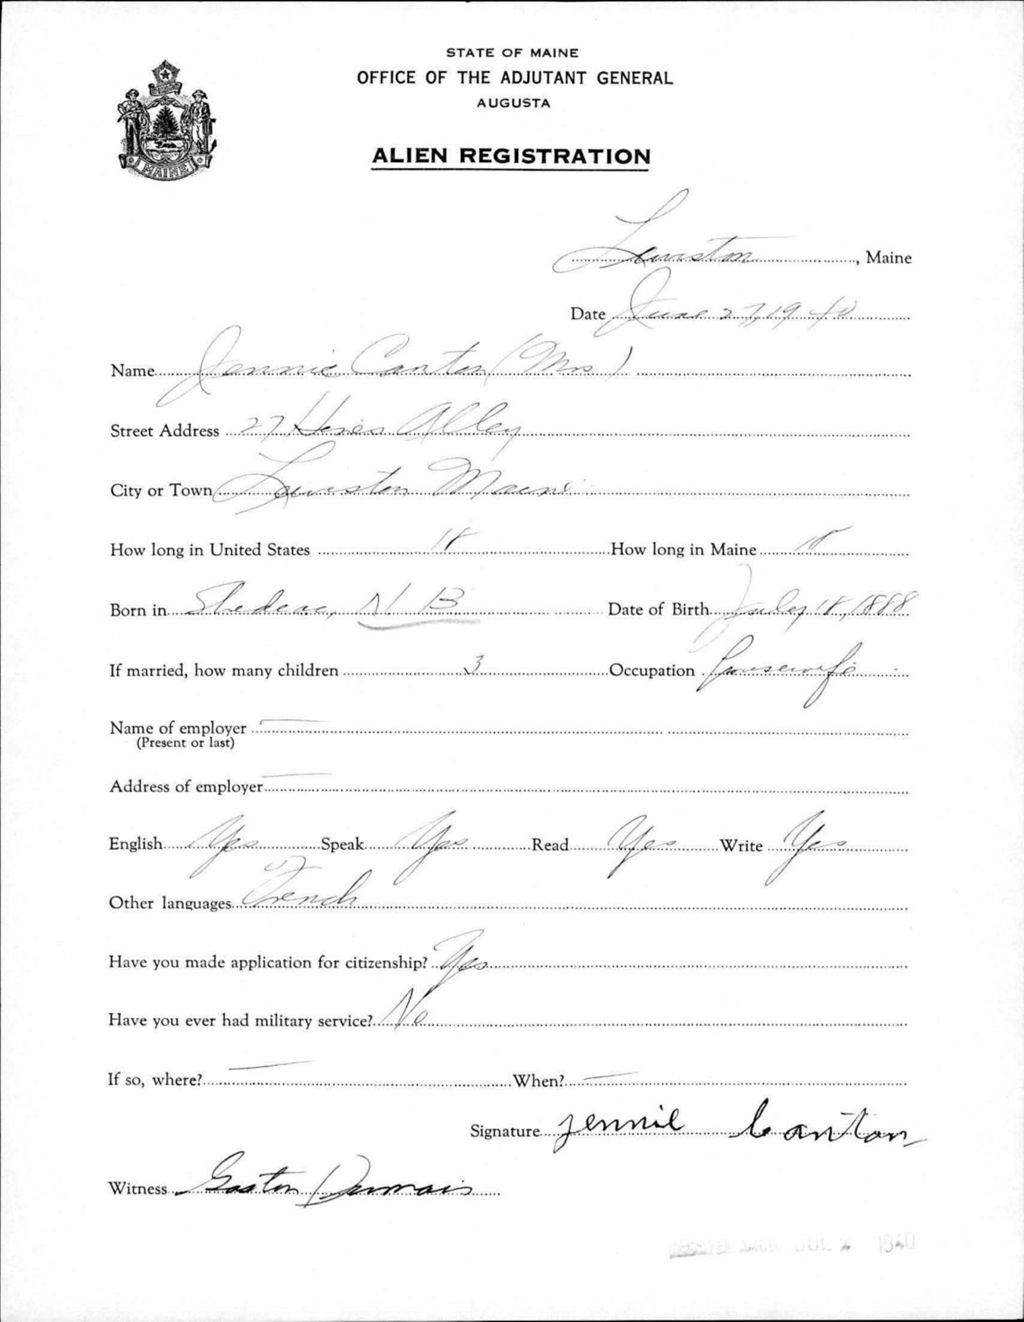 STATE OF MAINE
OFFICE OF THE ADJUTANT GENERAL
AUGUSTA
MAINE
ALIEN REGISTRATION
Lewiston, Maine
Date June 27, 1940
Name Jennie Canton (Mrs)
Street Address 27 Hines Alley
City or Town Lewiston Maine
How long in United States 18 How long in Maine 18
Born in Shedeac, N B Date of Birth July 18, 1888
If married, how many children 3 Occupation housewife
Name of employer —
(Present or last)
Address of employer —
English Yes Speak Yes Read Yes Write Yes
Other languages French
Have you made application for citizenship? Yes
Have you ever had military service? No
If so, where? — When? —
Signature Jennie Canton
Witness Gaston Dumais
JUL 2 1940